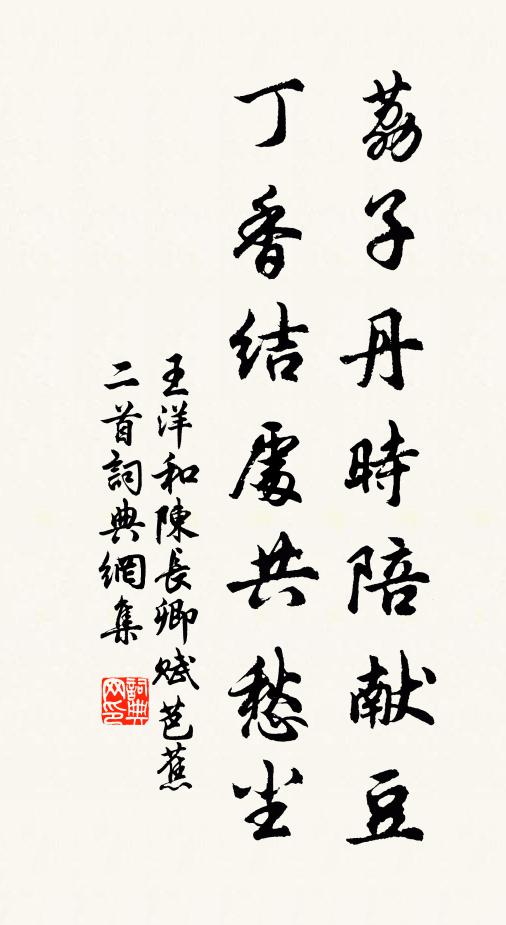 荔子丹時陪献豆
丁香結處共愁坐
王洋和陳長卿賦芭蕉
二首詞典網集
詞典
网印